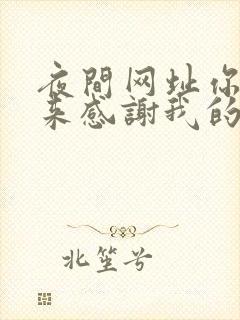 夜間网址你
来感謝我的
北笙兮